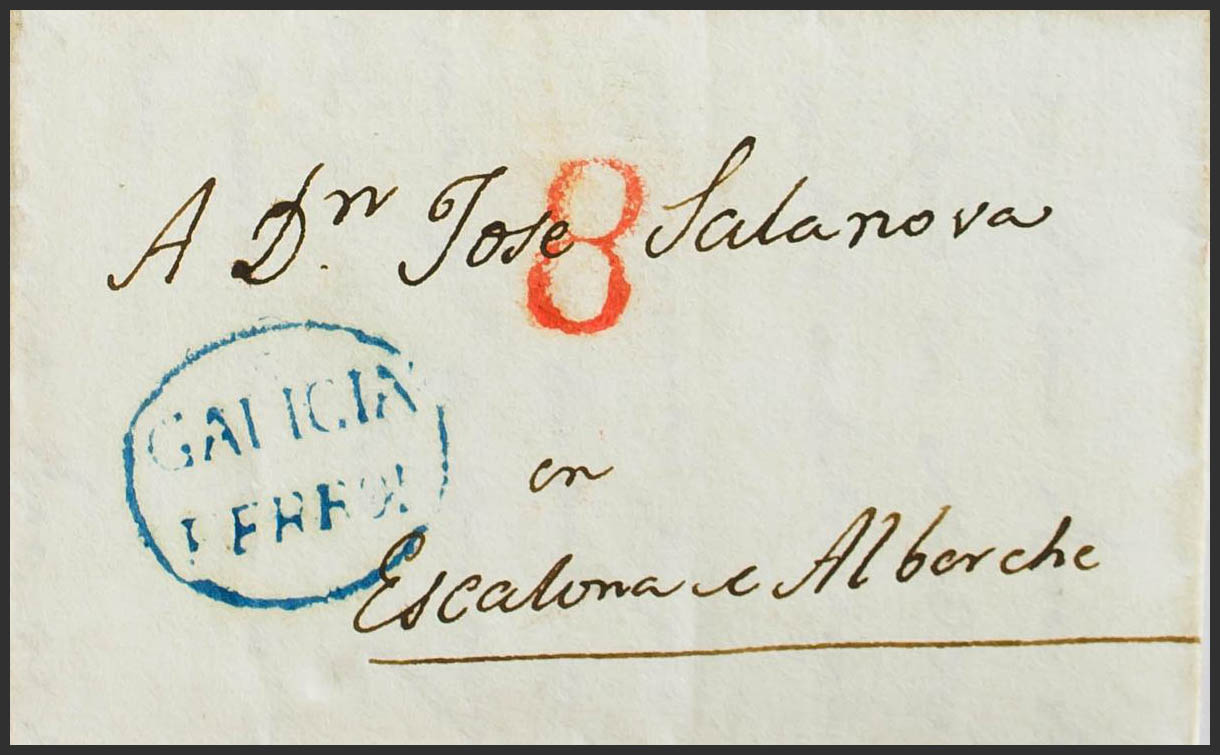 A Dⁿ. Jose Salanova
8
GALICIA
FERROL
en
Escalona e Alberche